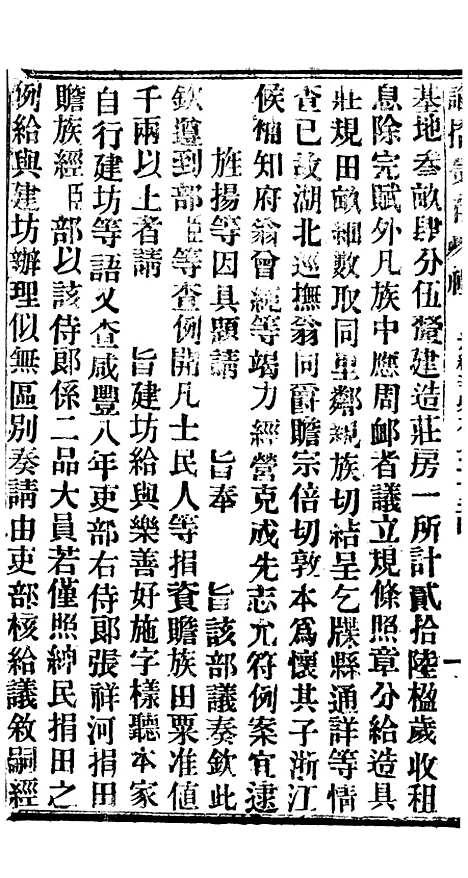 基地叁畝肆分伍釐建造莊房一所計貳拾陸楹歲收租
息除完賦外凡族中應周䘏者議立規條照章分給造具
莊規田畝細數取同里鄰親族切結呈乞牒縣通詳等情
查已故湖北巡撫翁同爵贍宗倍切敦本爲懷其子浙江
候補知府翁曾純等竭力經營克成先志尤符例案宜逮
旌揚等因具題請　旨奉　旨該部議奏欽此
欽遵到部臣等查例開凡士民人等捐資贍族田粟准値
千兩以上者請　旨建坊給與樂善好施字樣聽本家
自行建坊等語又查咸豐八年吏部右侍郞張祥河捐田
贍族經臣部以該侍郞係二品大員若僅照紳民捐田之
例給與建坊辦理似無區別奏請由吏部核給議敘嗣經